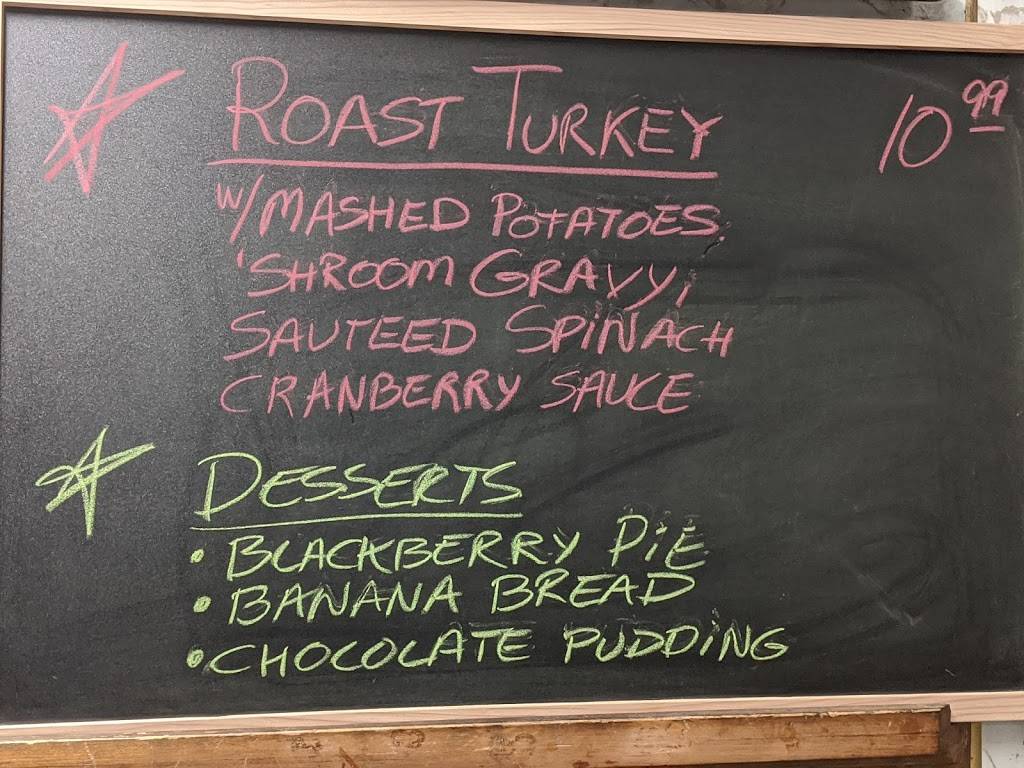 ROAST TURKEY 10 99
W/MASHED POTATOES,
'SHROOM GRAVY,
SAUTEED SPINACH
CRANBERRY SAUCE
DESSERTS
• BLACKBERRY PIE
• BANANA BREAD
• CHOCOLATE PUDDING